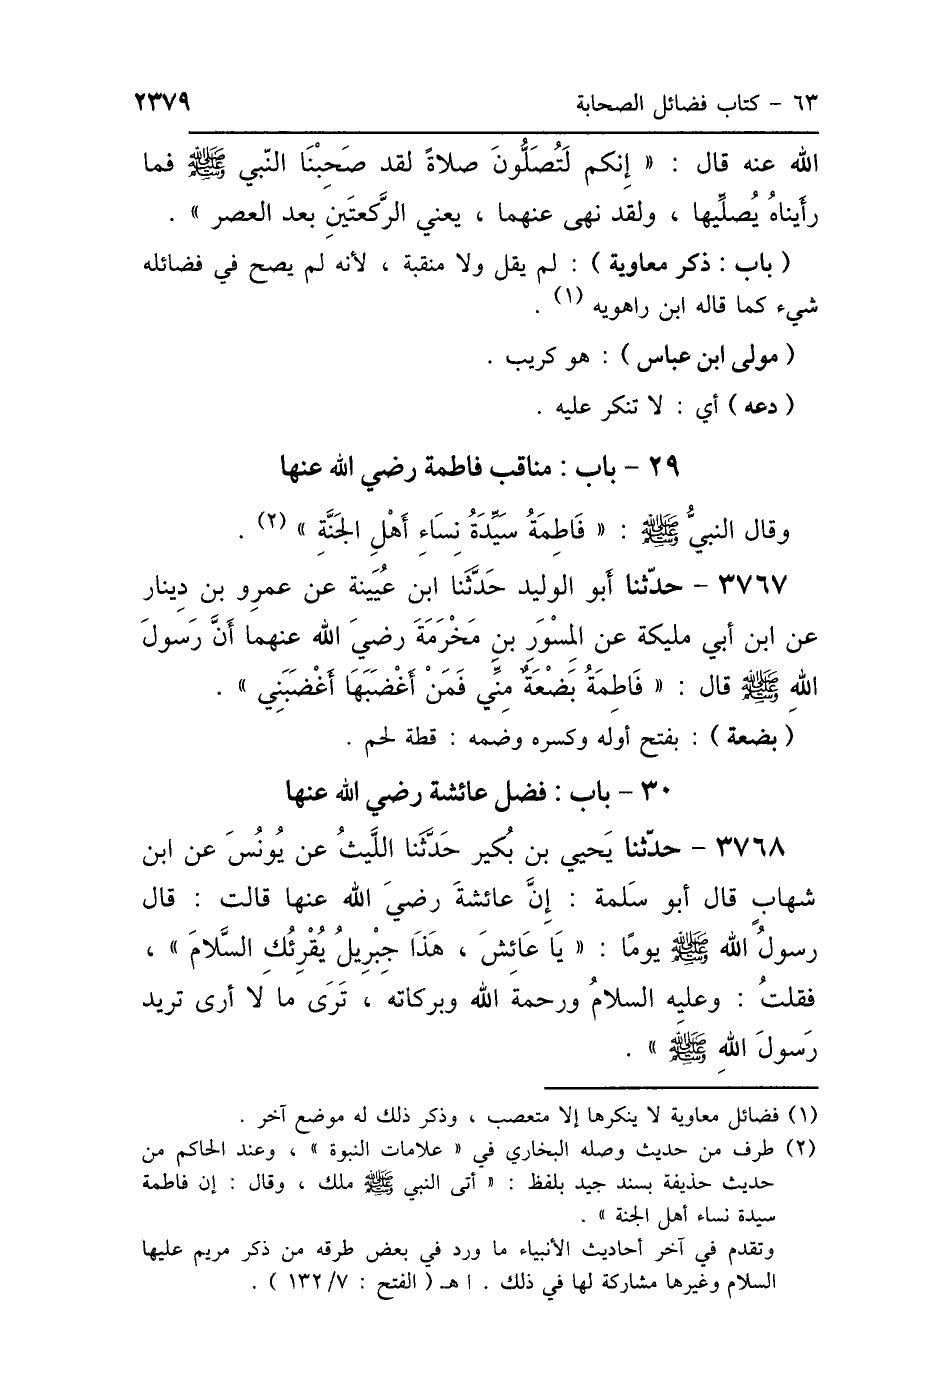 ٦٣ – كتاب فضائل الصحابة ٢٣٧٩
الله عنه قال : « إنكم لَتُصَلُّونَ صلاةً لقد صَحِبْنَا النّبي ﷺ فما
رأَيناهُ يُصلِّيها ، ولقد نهى عنهما ، يعني الرَّكعتَينِ بعد العصر » .
( باب : ذكر معاوية ) : لم يقل ولا منقبة ، لأنه لم يصح في فضائله
شيء كما قاله ابن راهويه (١) .
( مولى ابن عباس ) : هو كريب .
( دعه ) أي : لا تنكر عليه .
٢٩ – باب : مناقب فاطمة رضي الله عنها
وقال النبيُّ ﷺ : « فَاطِمَةُ سَيِّدَةُ نِسَاءِ أَهْلِ الجَنَّةِ » (٢) .
٣٧٦٧ – حدّثنا أبو الوليد حَدَّثَنا ابن عُيَينة عن عمرِو بن دِينار
عن ابن أبي مليكة عن المِسْوَرِ بنِ مَخْرَمَةَ رضيَ الله عنهما أنَّ رَسولَ
اللهِ ﷺ قال : « فَاطِمَةُ بَضْعَةٌ مِنِّي فَمَنْ أَغْضَبَهَا أَغْضَبَنِي » .
( بضعة ) : بفتح أوله وكسره وضمه : قطة لحم .
٣٠ – باب : فضل عائشة رضي الله عنها
٣٧٦٨ – حدّثنا يَحيي بن بُكير حَدَّثَنا اللَّيثُ عن يُونُسَ عن ابن
شهابٍ قال أبو سَلمة : إنَّ عائشةَ رضيَ الله عنها قالت : قال
رسولُ الله ﷺ يومًا : « يَا عَائِشَ ، هَذَا جِبْرِيلُ يُقْرِئُكِ السَّلَامَ » ،
فقلتُ : وعليه السلامُ ورحمة الله وبركاته ، تَرَى ما لا أرى تريد
رَسولَ اللهِ ﷺ » .
(١) فضائل معاوية لا ينكرها إلا متعصب ، وذكر ذلك له موضع آخر .
(٢) طرف من حديث وصله البخاري في « علامات النبوة » ، وعند الحاكم من
حديث حذيفة بسند جيد بلفظ : « أتى النبي ﷺ ملك ، وقال : إن فاطمة
سيدة نساء أهل الجنة » .
وتقدم في آخر أحاديث الأنبياء ما ورد في بعض طرقه من ذكر مريم عليها
السلام وغيرها مشاركة لها في ذلك . ا هـ ( الفتح : ٧/ ١٣٢ ) .